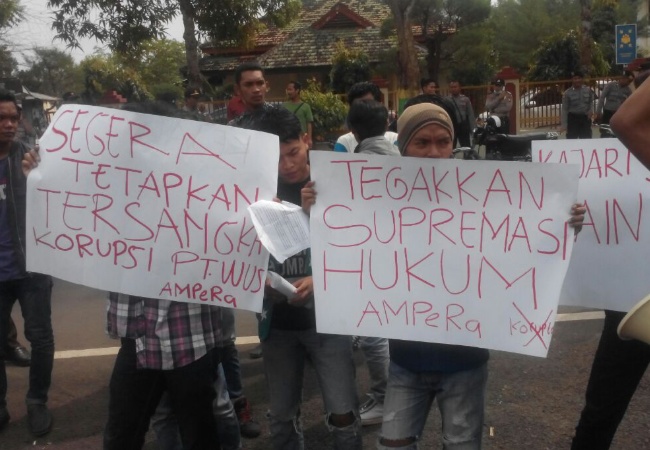 SEGERA
TETAPKAN
TERSANGKA
KORUPSI PT.WUS
AMPeRa
TEGAKKAN
SUPREMASI
HUKUM
AMPeRa
KAJARI